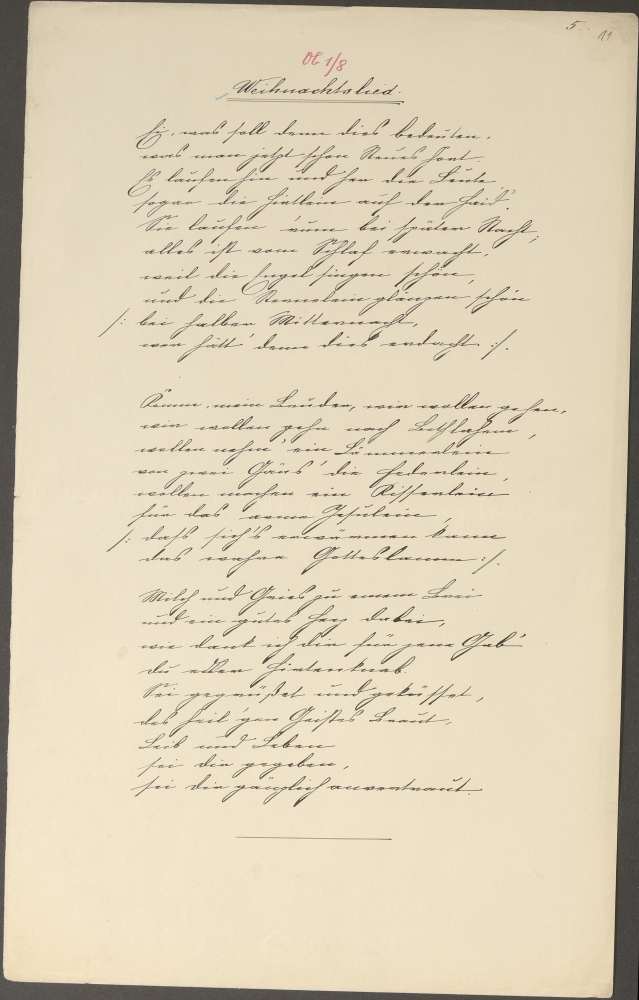 5. 11
OÖ 1/8
Weihnachtslied.
Ei, was soll denn dies bedeuten,
was man jetzt schon Neues hört.
Es laufen hin und her die Leute
sogar die Hirtlein auf der Haid'.
Sie laufen 'rum bei später Nacht,
alles ist vom Schlaf erwacht,
weil die Engel singen schön,
und die Sternelein glänzen schön
/: bei halber Mitternacht,
wer hätt' denn dies erdacht :/.
Komm, mein Bruder, wir wollen gehen,
wir wollen gehn nach Bethlahem,
wollen nehm' ein Lämmerlein
von zwei Gäns' die Federlein,
wollen machen ein Kisserlein
für das arme Jesulein,
/: daß sich's erwärmen kann
das wahre Gotteslamm :/.
Milch und Gries zu einem Brei
und ein gutes Herz dabei,
wie dank ich dir für jene Gab'
du edler Hirtenknab.
Sei gegrüßet und geküsset,
des heil'gen Geistes Braut,
Leib und Leben
sei dir gegeben,
sei dir gänzlich anvertraut.